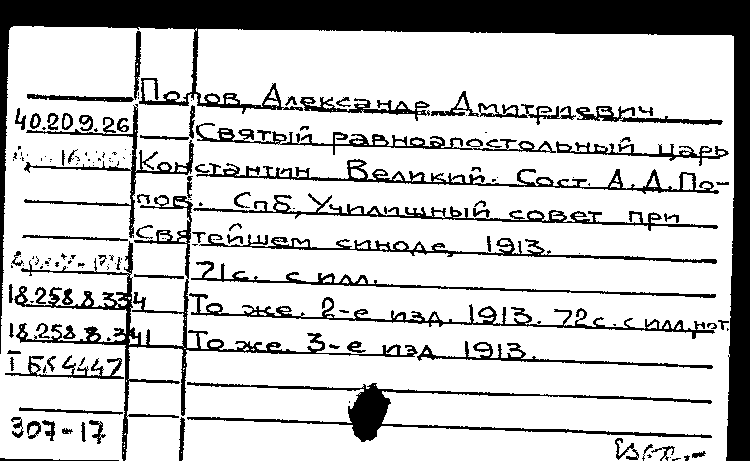 Попов, Александр Дмитриевич.
40.20.9.26 Святый равноапостольный царь
Константин Великий. Сост. А.Д.По-
пов. Спб, Училищный совет при
Святейшем синоде, 1913.
71с. с илл.
18.258.8.334 То же. 2-е изд. 1913. 72с. с илл, нот.
18.258.8.341 То же. 3-е изд 1913.
Т БК 4447
307-17